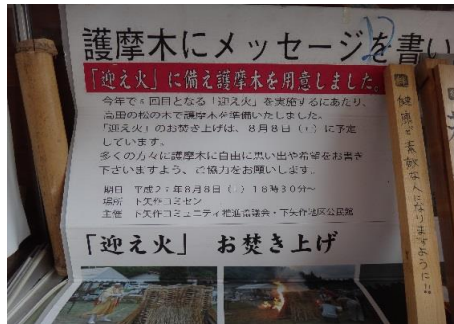 護摩木にメッセージを書い
「迎え火」に備え護摩木を用意しました。
今年で5回目となる「迎え火」を実施するにあたり、
高田の松の木で護摩木を準備いたしました。
「迎え火」のお焚き上げは、8月8日(土)に予定
しています。
多くの方々に護摩木に自由に思い出や希望をお書き
下さいますよう、ご協力をお願いします。
期日 平成27年8月8日(土)18時30分~
場所 下矢作コミセン
主催 下矢作コミュニティ推進協議会・下矢作地区公民館
「迎え火」 お焚き上げ
健康で素敵な人になりますように!!